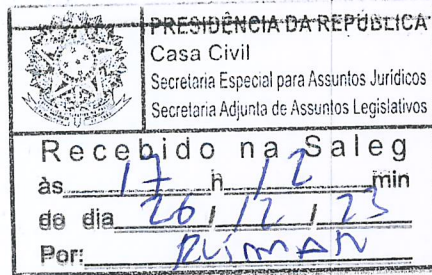 PRESIDÊNCIA DA REPÚBLICA
Casa Civil
Secretaria Especial para Assuntos Jurídicos
Secretaria Adjunta de Assuntos Legislativos
Recebido na Saleg
às 17 h 12 min
do dia 26 / 12 / 23
Por: